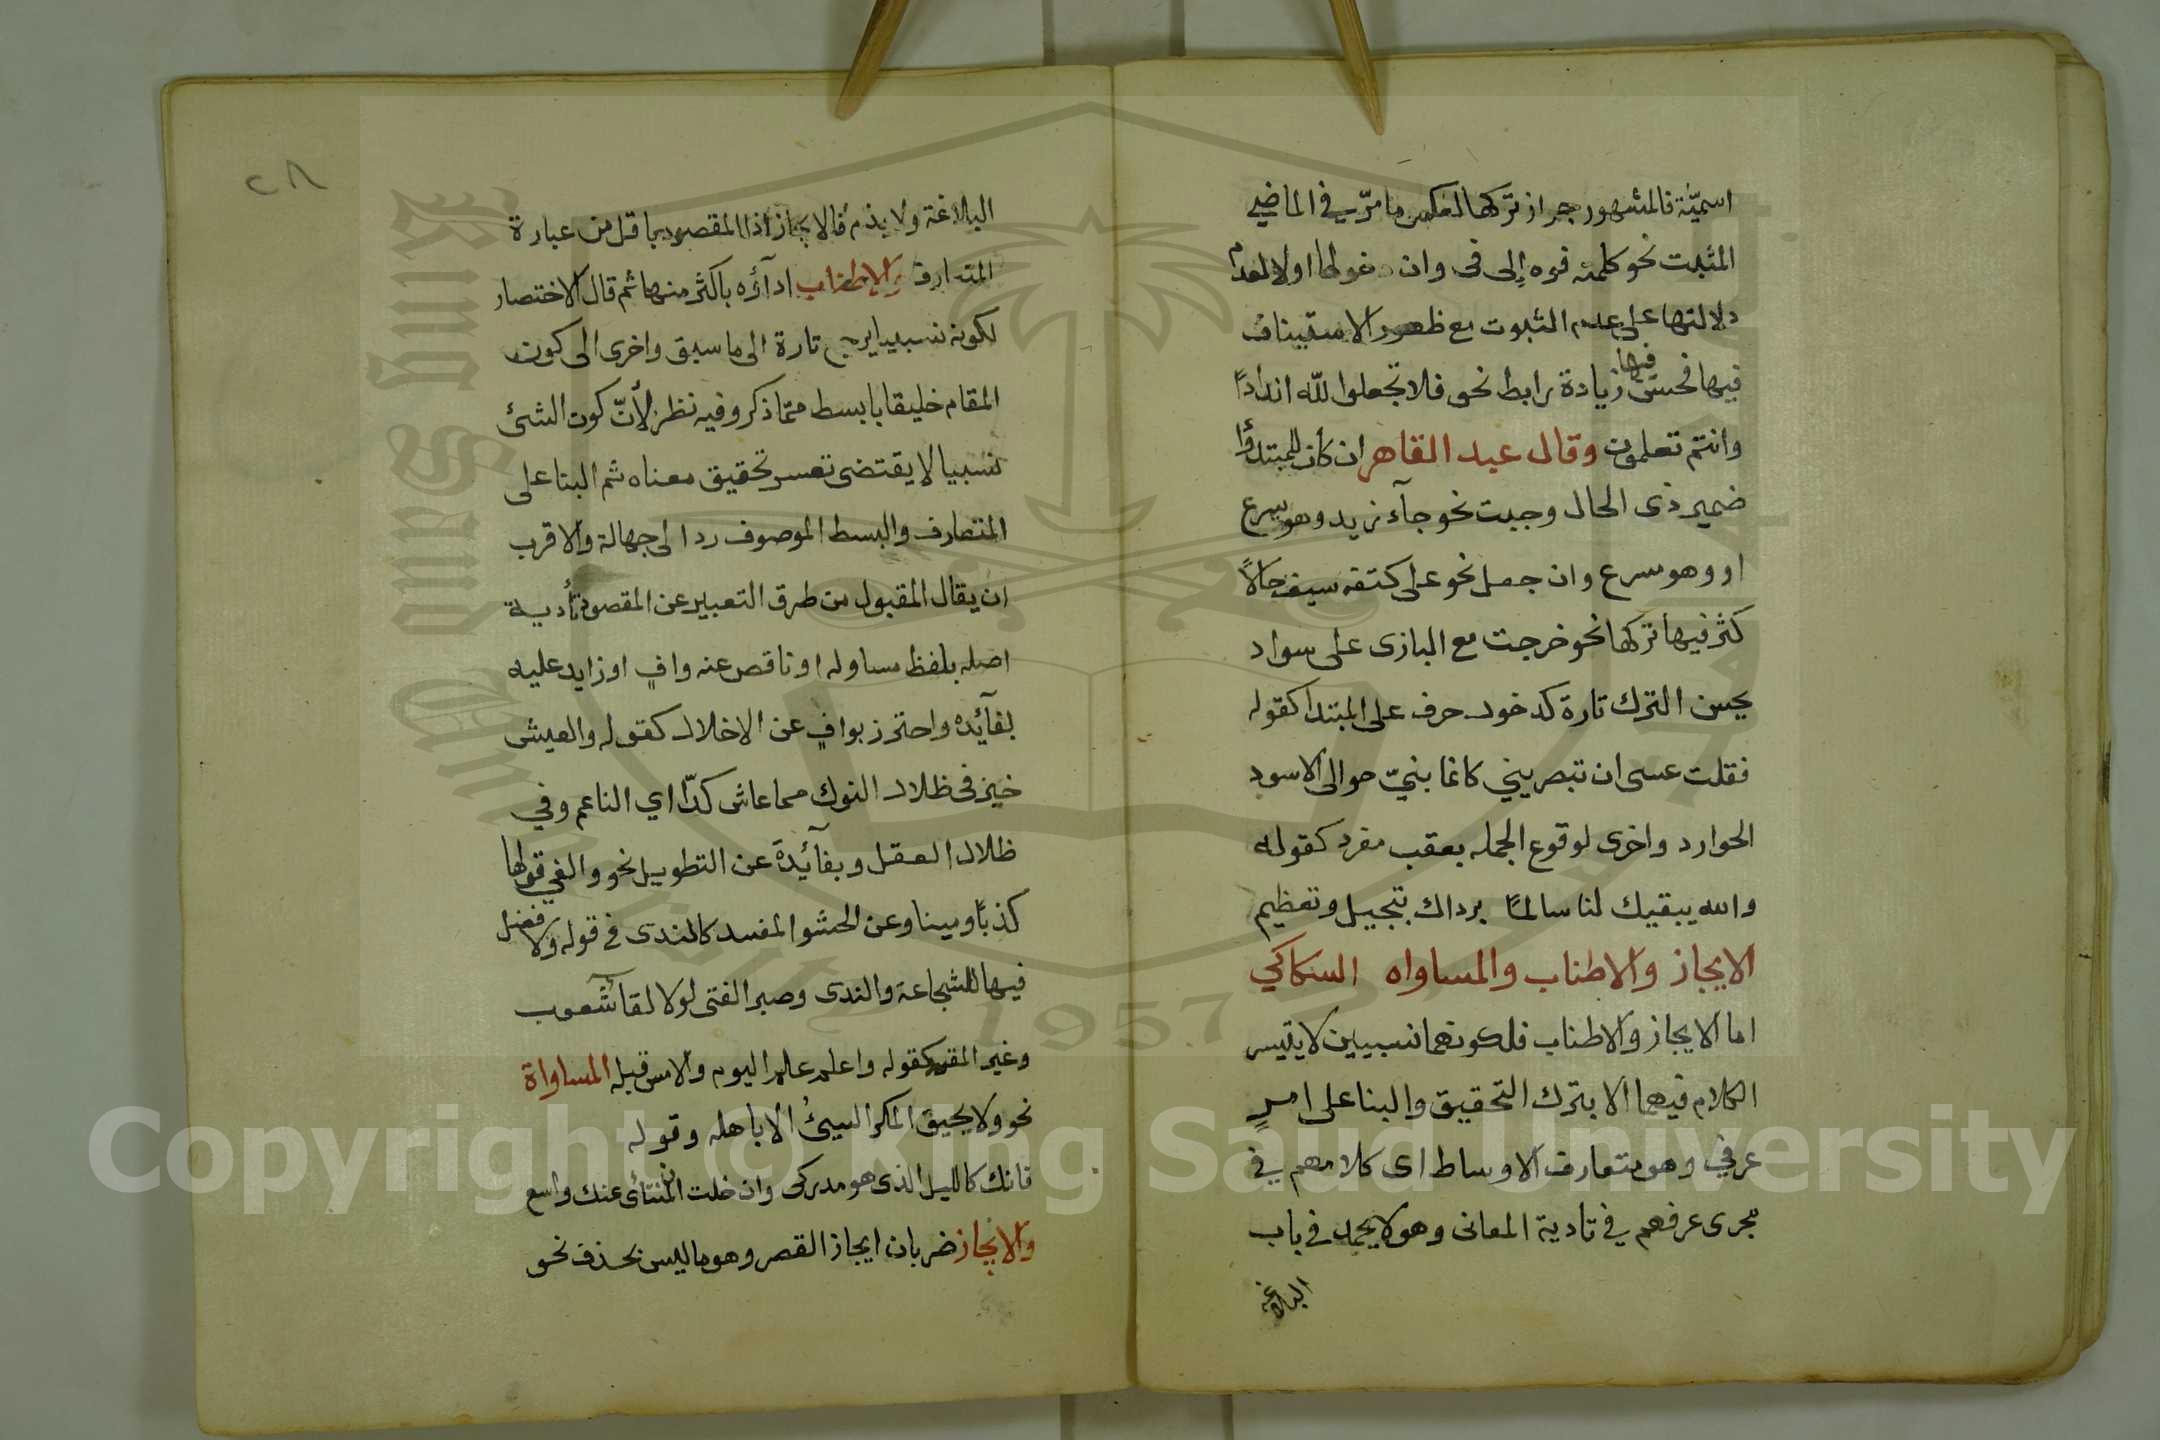 اسميّة فالمشهور جواز تركها لعكس ما مرّ في الماضي
المثبت نحو كلمته فوه إلى فى وان دخولها اولى لعدم
دلالتها على عدم الثبوت مع ظهور الاستيناف
فيها فحسن فيها زيادة رابط نحو فلا تجعلوا لله اندادًا
وانتم تعلمون وقال عبد القاهر ان كان المبتدأ
ضمير ذى الحال وجبت نحو جآء زيد وهو يسرع
او وهو مسرع وان جعل نحو على كتفه سيف حالاً
كثر فيها تركها نحو خرجت مع البازى على سواد
يحسن الترك تارة كدخول حرف على المبتدا كقوله
فقلت عسى ان تبصريني كانما بنيّ حوالى الاسود
الحوارد واخرى لوقوع الجمله بعقب مفرد كقوله
والله يبقيك لنا سالمًا برداك تبجيل وتعظيم
الايجاز والاطناب والمساواه السكاكي
اما الايجاز والاطناب فلكونهما نسبيين لا يتيسر
الكلام فيهما الا بترك التحقيق والبنا على امرٍ
عرفي وهو متعارف الاوساط اى كلامهم في
مجرى عرفهم في تادية المعانى وهو لا يحمد في باب
البلاغة
٢٨
البلاغة ولا يذم فالايجاز اذا المقصود باقل من عبارة
المتعارف والاطناب ادآؤه باكثر منها ثم قال الاختصار
لكونه نسبيا يرجع تارة الى ما سبق واخرى الى كون
المقام خليقا بابسط ممّا ذكر وفيه نظر لأنّ كون الشئ
نسبيا لا يقتضى تعسر تحقيق معناه ثم البنا على
المتعارف والبسط الموصوف رد الى جهالة والاقرب
ان يقال المقبول من طرق التعبير عن المقصود تأدية
اصله بلفظ مساو له او ناقص عنه وافٍ او زايد عليه
بفآئده واحترز بوافٍ عن الاخلال كقوله والعيش
خيز فى ظلال النوك مما عاش كدّا اي الناعم وفي
ظلال العقل وبفآئدة عن التطويل نحو والفي قولها
كذبًا ومينا وعن الحشو المفسد كالندى في قوله ولا فضل
فيها للشجاعة والندى وصبر الفتى لولا لقآ شعوب
وغير المفسد كقوله واعلم علم اليوم والامس قبله المساواة
نحو ولا يحيق المكر السيئ الا باهله وقوله
فانك كالليل الذى هو مدركى وان خلت ان المنتأى عنك واسع
والايجاز ضربان ايجاز القصر وهو ما ليس بحذف نحو